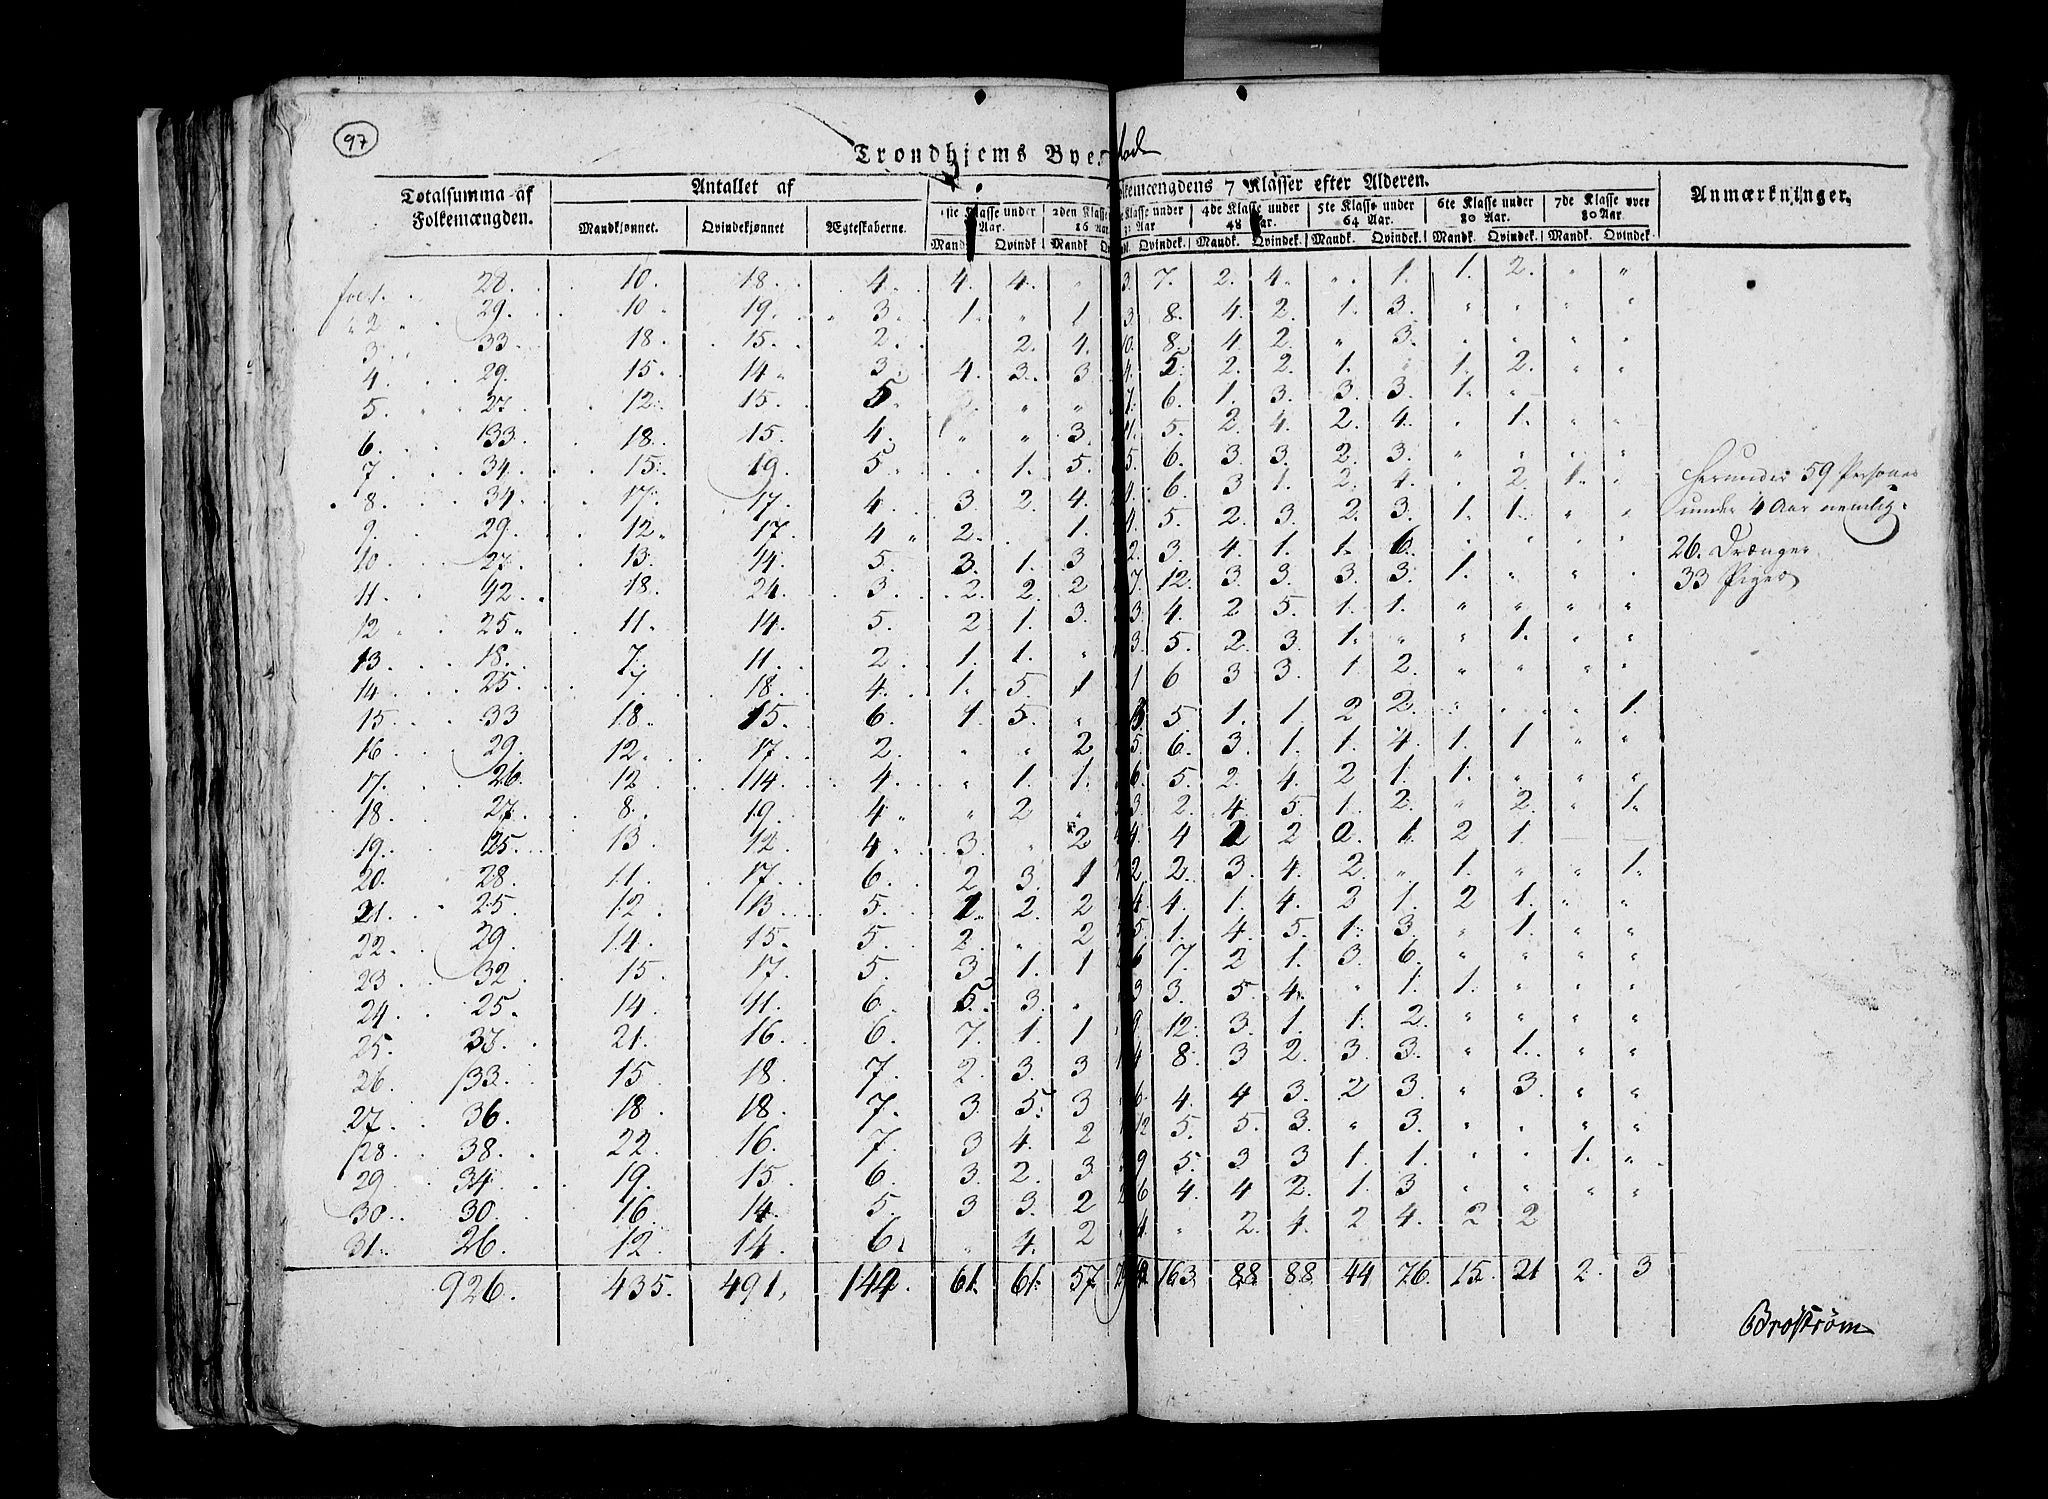 97
Trondhjems Byes
Totalsumma af Folkemængden. Antallet af Folkemængdens 7 Klasser efter Alderen. Anmærkninger.
Mandkjønnet. Qvindekjønnet Ægteskaberne. 1ste Klasse under Aar. 2den Klasse 16 Aar Klasse under 32 Aar 4de Klasse under 48 Aar. 5te Klasse under 64 Aar. 6te Klasse under 80 Aar. 7de Klasse over 80 Aar
Mandk Qvindk Mandk Qvindek. Mandk. Qvindek. Mandk. Qvindek. Mandk. Qvindek. Mandk. Qvindek
fol. 1. 28. 10. 18. 4. 4. 4. " 3. 7. 2. 4. " 1. 1. 2. " "
" 2. 29. 10. 19. 3. 1. " 1 3. 8. 4. 2. 1. 3. " " " "
3. 33. 18. 15. 2. 2. 4. 10. 8. 4. 2. " 3. " " " "
4. 29. 15. 14. 3. 4. 3. 3 4. 5. 2. 2. 1. " 1. 2. " "
5. 27. 12. 15. 5. " " 7. 6. 1. 3. 3. 3. 1. "
6. 33. 18. 15. 4. " " 3. 11. 5. 2. 4. 2. 4. " 1. " "
7. 34. 15. 19. 5. . 1. 5. 5. 6. 3. 3. 2. 3. " " " "
8. 34. 17. 17. 4. 3. 2. 4. 4. 6. 3 1. 2. 4. " 2. 1. "
9. 29. 12. 17. 4 2. . 1. 4. 5. 2. 3. 2. 3. 1. 1. " "
10. 27. 13. 14. 5. 3. 1. 3 2. 3. 4. 1. 1. 6. " " " "
11. 42. 18. 24. 3. 2. 2. 2 7. 12. 3. 3. 3. 3. 1. " " "
12. 25. 11. 14. 5. 2 1. 3. 3. 4. 2 5. 1. 1. " " " "
13. 18. 7. 11. 2. 1. 1. " 3 5. 2. 3. 1. " " 1. " "
14. 25. 7. 18. 4. 1. 5. 1 1 6 3 3. 1 2. " " " "
15. 33 18. 15. 6. 1. 5. " 5 1. 1. 2 2. " " " 1.
16. 29. 12. 17. 2. " " 2 5. 6. 3. 1. 1. 4. 1. 1 " "
17. 26. 12 14. 4. " 1. 1. 6. 5. 2. 4. 2 1. 1. " " "
18. 27. 8. 19. 4. " 2 " 3. 2. 4. 5. 1. 2. " 2. " 1.
19. 25. 13. 12. 4. 3. " 2 4. 4 2 2 1. 2 1.
20. 28. 11. 17. 6. 2 3. 1 2. 2. 3. 4. 2. " 1. " " 1.
21. 25. 12. 13. 5. 1. 2. 2 4 4. 1. 4. 2 1. 2 1. " "
22. 29. 14. 15. 5. 2. " 2 5. 1. 4. 5. 1. 3. " 1. " "
23. 32. 15. 17. 5. 3. 1. 1 6 7. 2 1. 3. 6. " " " "
24. 25. 14. 11. 6. 5. 3. " 3 3. 5. 4. " 1. 1. " " "
25. 37. 21. 16. 6. 7. 1. 1 9 12. 3. 1. 1. 2. " " " "
26. 33. 15. 18. 7. 2. 3. 3 4 8. 3 2. 3. 3. " 1. " "
27. 36. 18. 18. 7. 3. 5. 3 6. 4. 4 3. 2 3. " 3. " "
28. 38. 22. 16. 7. 3 4. 2 12 5. 5. 3. " 3. " " " "
29. 34. 19. 15. 6. 3. 2. 3. 9 5. 3 3 1. 1. " " 1. "
30. 30. 16. 14. 5. 3 3. 2 6 4. 4 2. 1. 3 " " " "
31. 26. 12. 14. 6. " 4. 2 4. " 2. 4. 2 4. 2 2
926. 435. 491. 142. 61. 61. 57 163. 88 88. 44 76. 15. 21 2. 3
Herunder 59 Personer
under 4 Aar nemlig.
26. Drænger
33 Piger
Broström